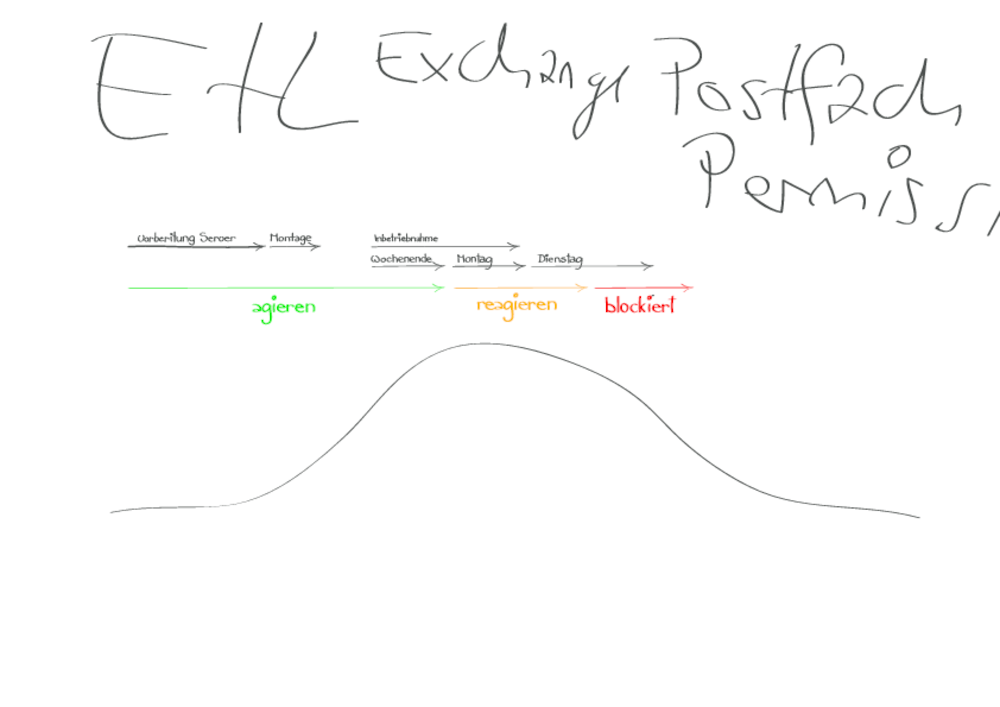 EtL Exchange Postfach
Permissi
Vorbereitung Server Montage Inbetriebnahme
Wochenende Montag Dienstag
agieren reagieren blockiert